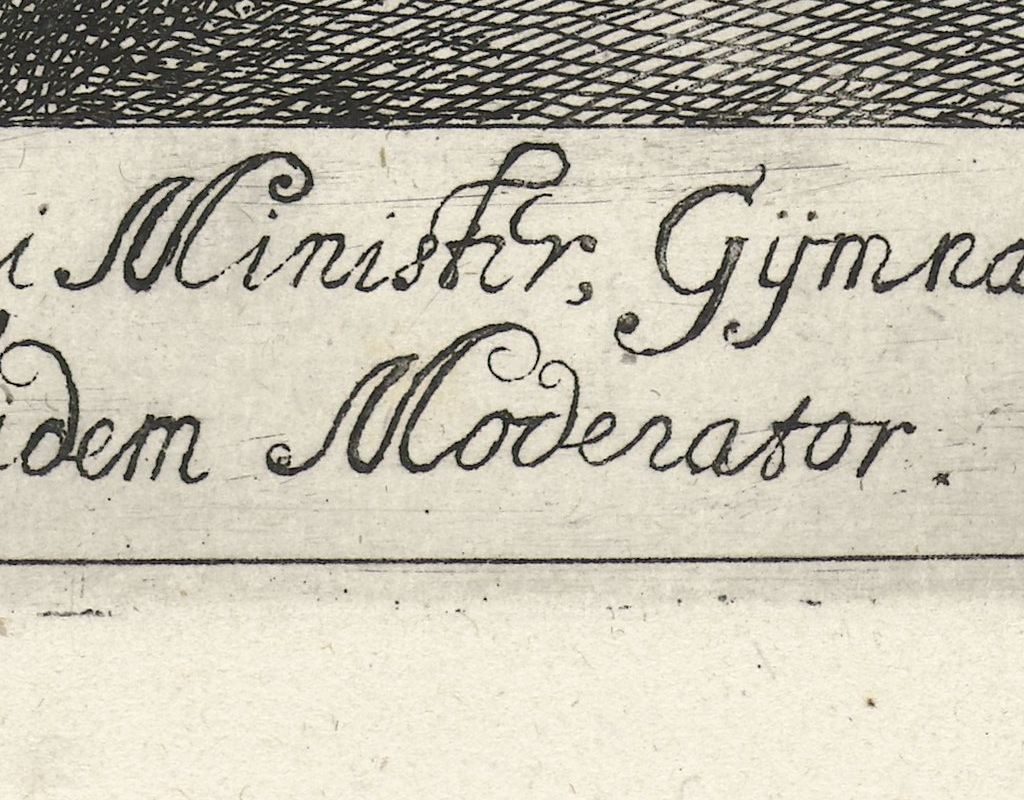 i Minister, Gÿmna
idem Moderator.